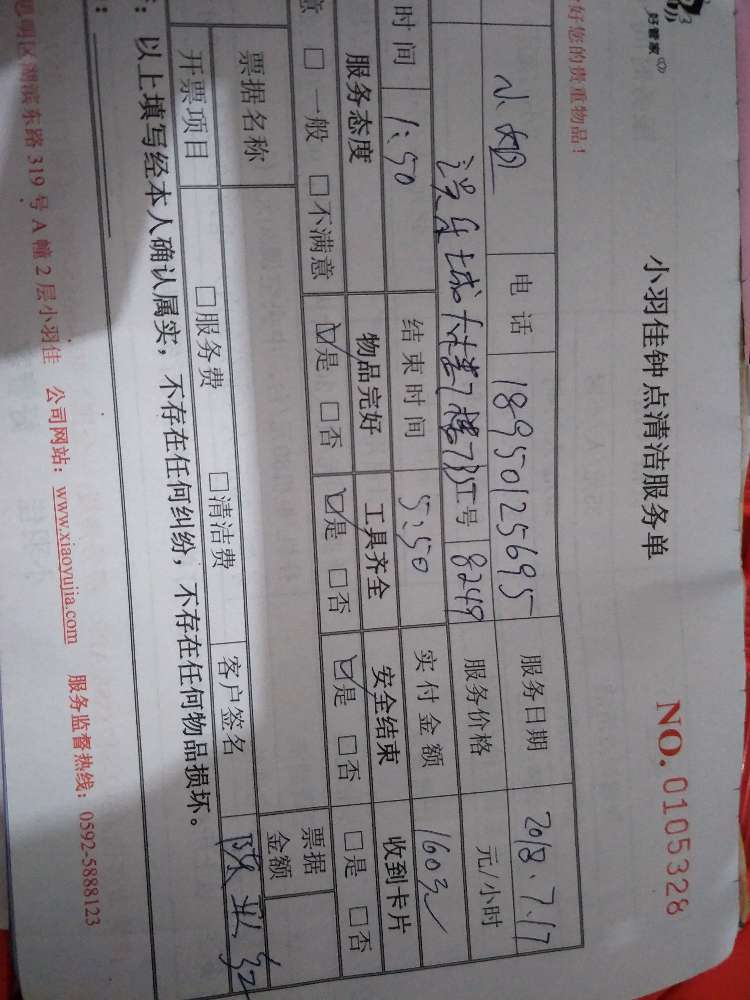 好管家
小羽佳钟点清洁服务单 NO. 0105328
好您的贵重物品!
电话 18950125695 服务日期 2018.7.17
工号 8249 服务价格 元/小时
时间 1:50 结束时间 5:50 实付金额 160元
服务态度 物品完好 工具齐全 安全结束 收到卡片
意 □一般 □不满意 ☑是 □否 ☑是 □否 ☑是 □否 □是 □否
票据名称 票据金额
开票项目 □服务费 □清洁费 客户签名
:以上填写经本人确认属实,不存在任何纠纷,不存在任何物品损坏。
思明区湖滨东路 319 号 A 幢 2 层小羽佳 公司网站:www.xiaoyujia.com 服务监督热线:0592-5888123